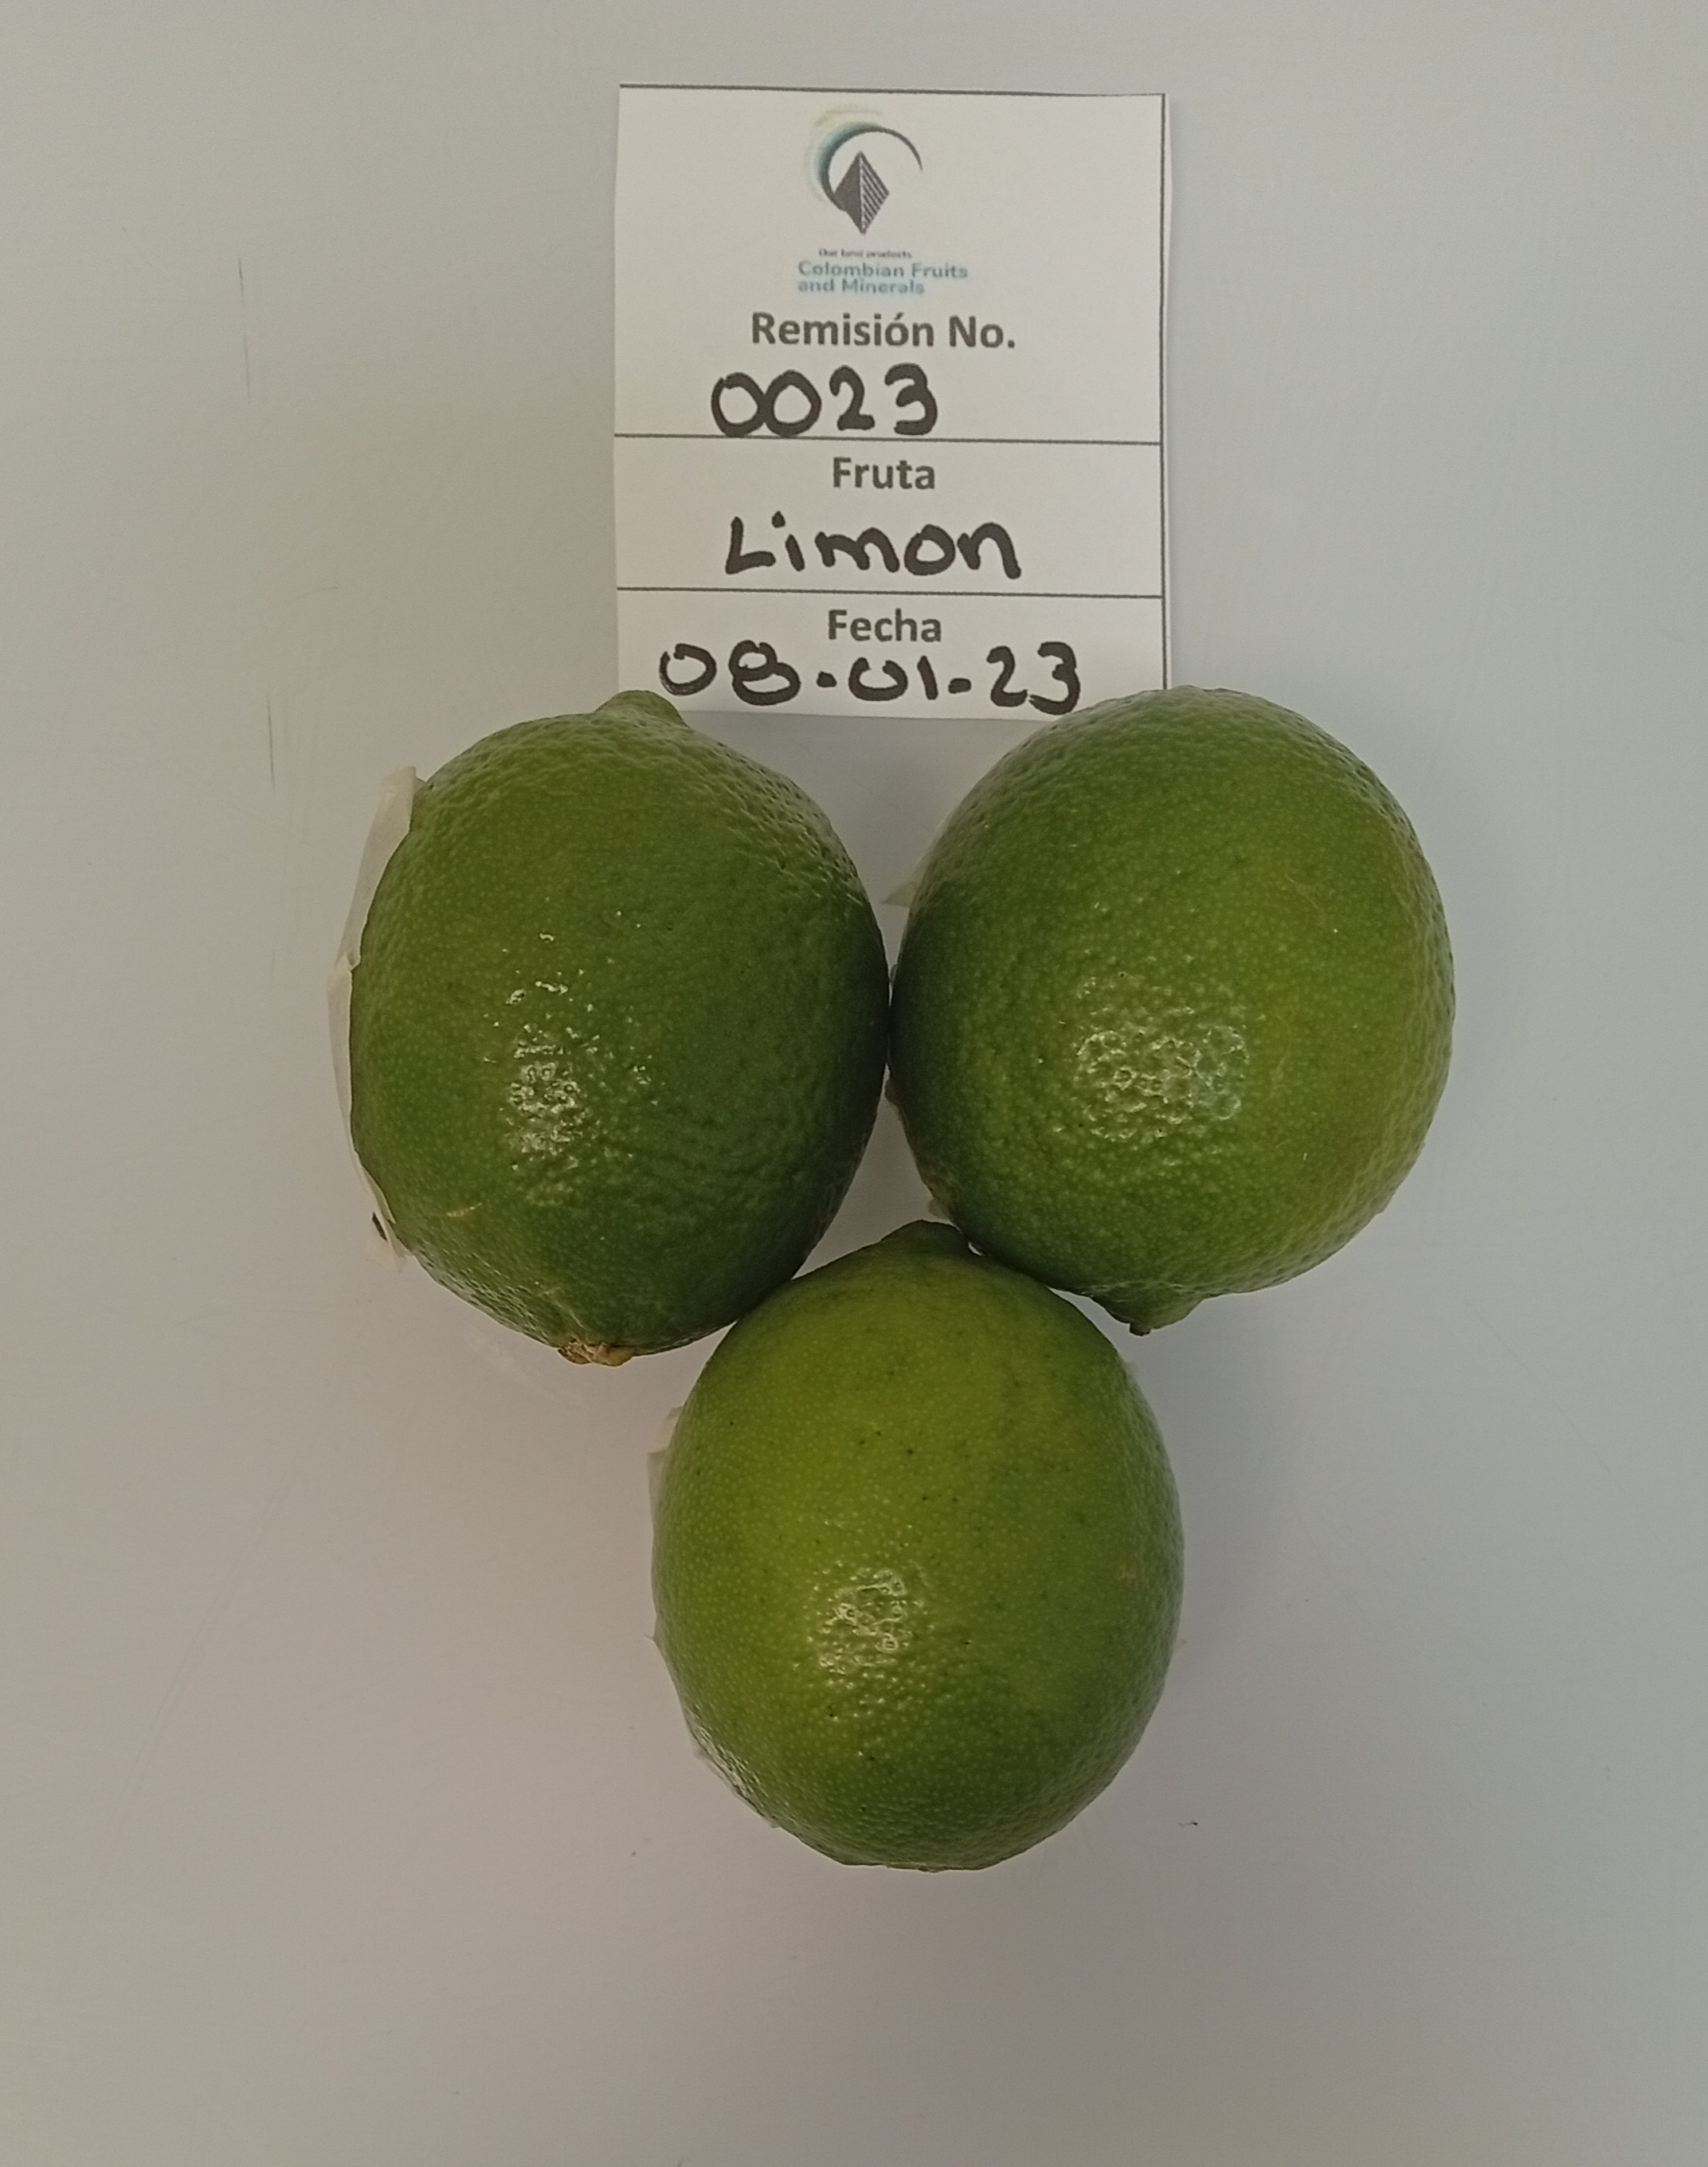 Our best products
Colombian Fruits
and Minerals
Remisión No.
0023
Fruta
Limon
Fecha
08-01-23